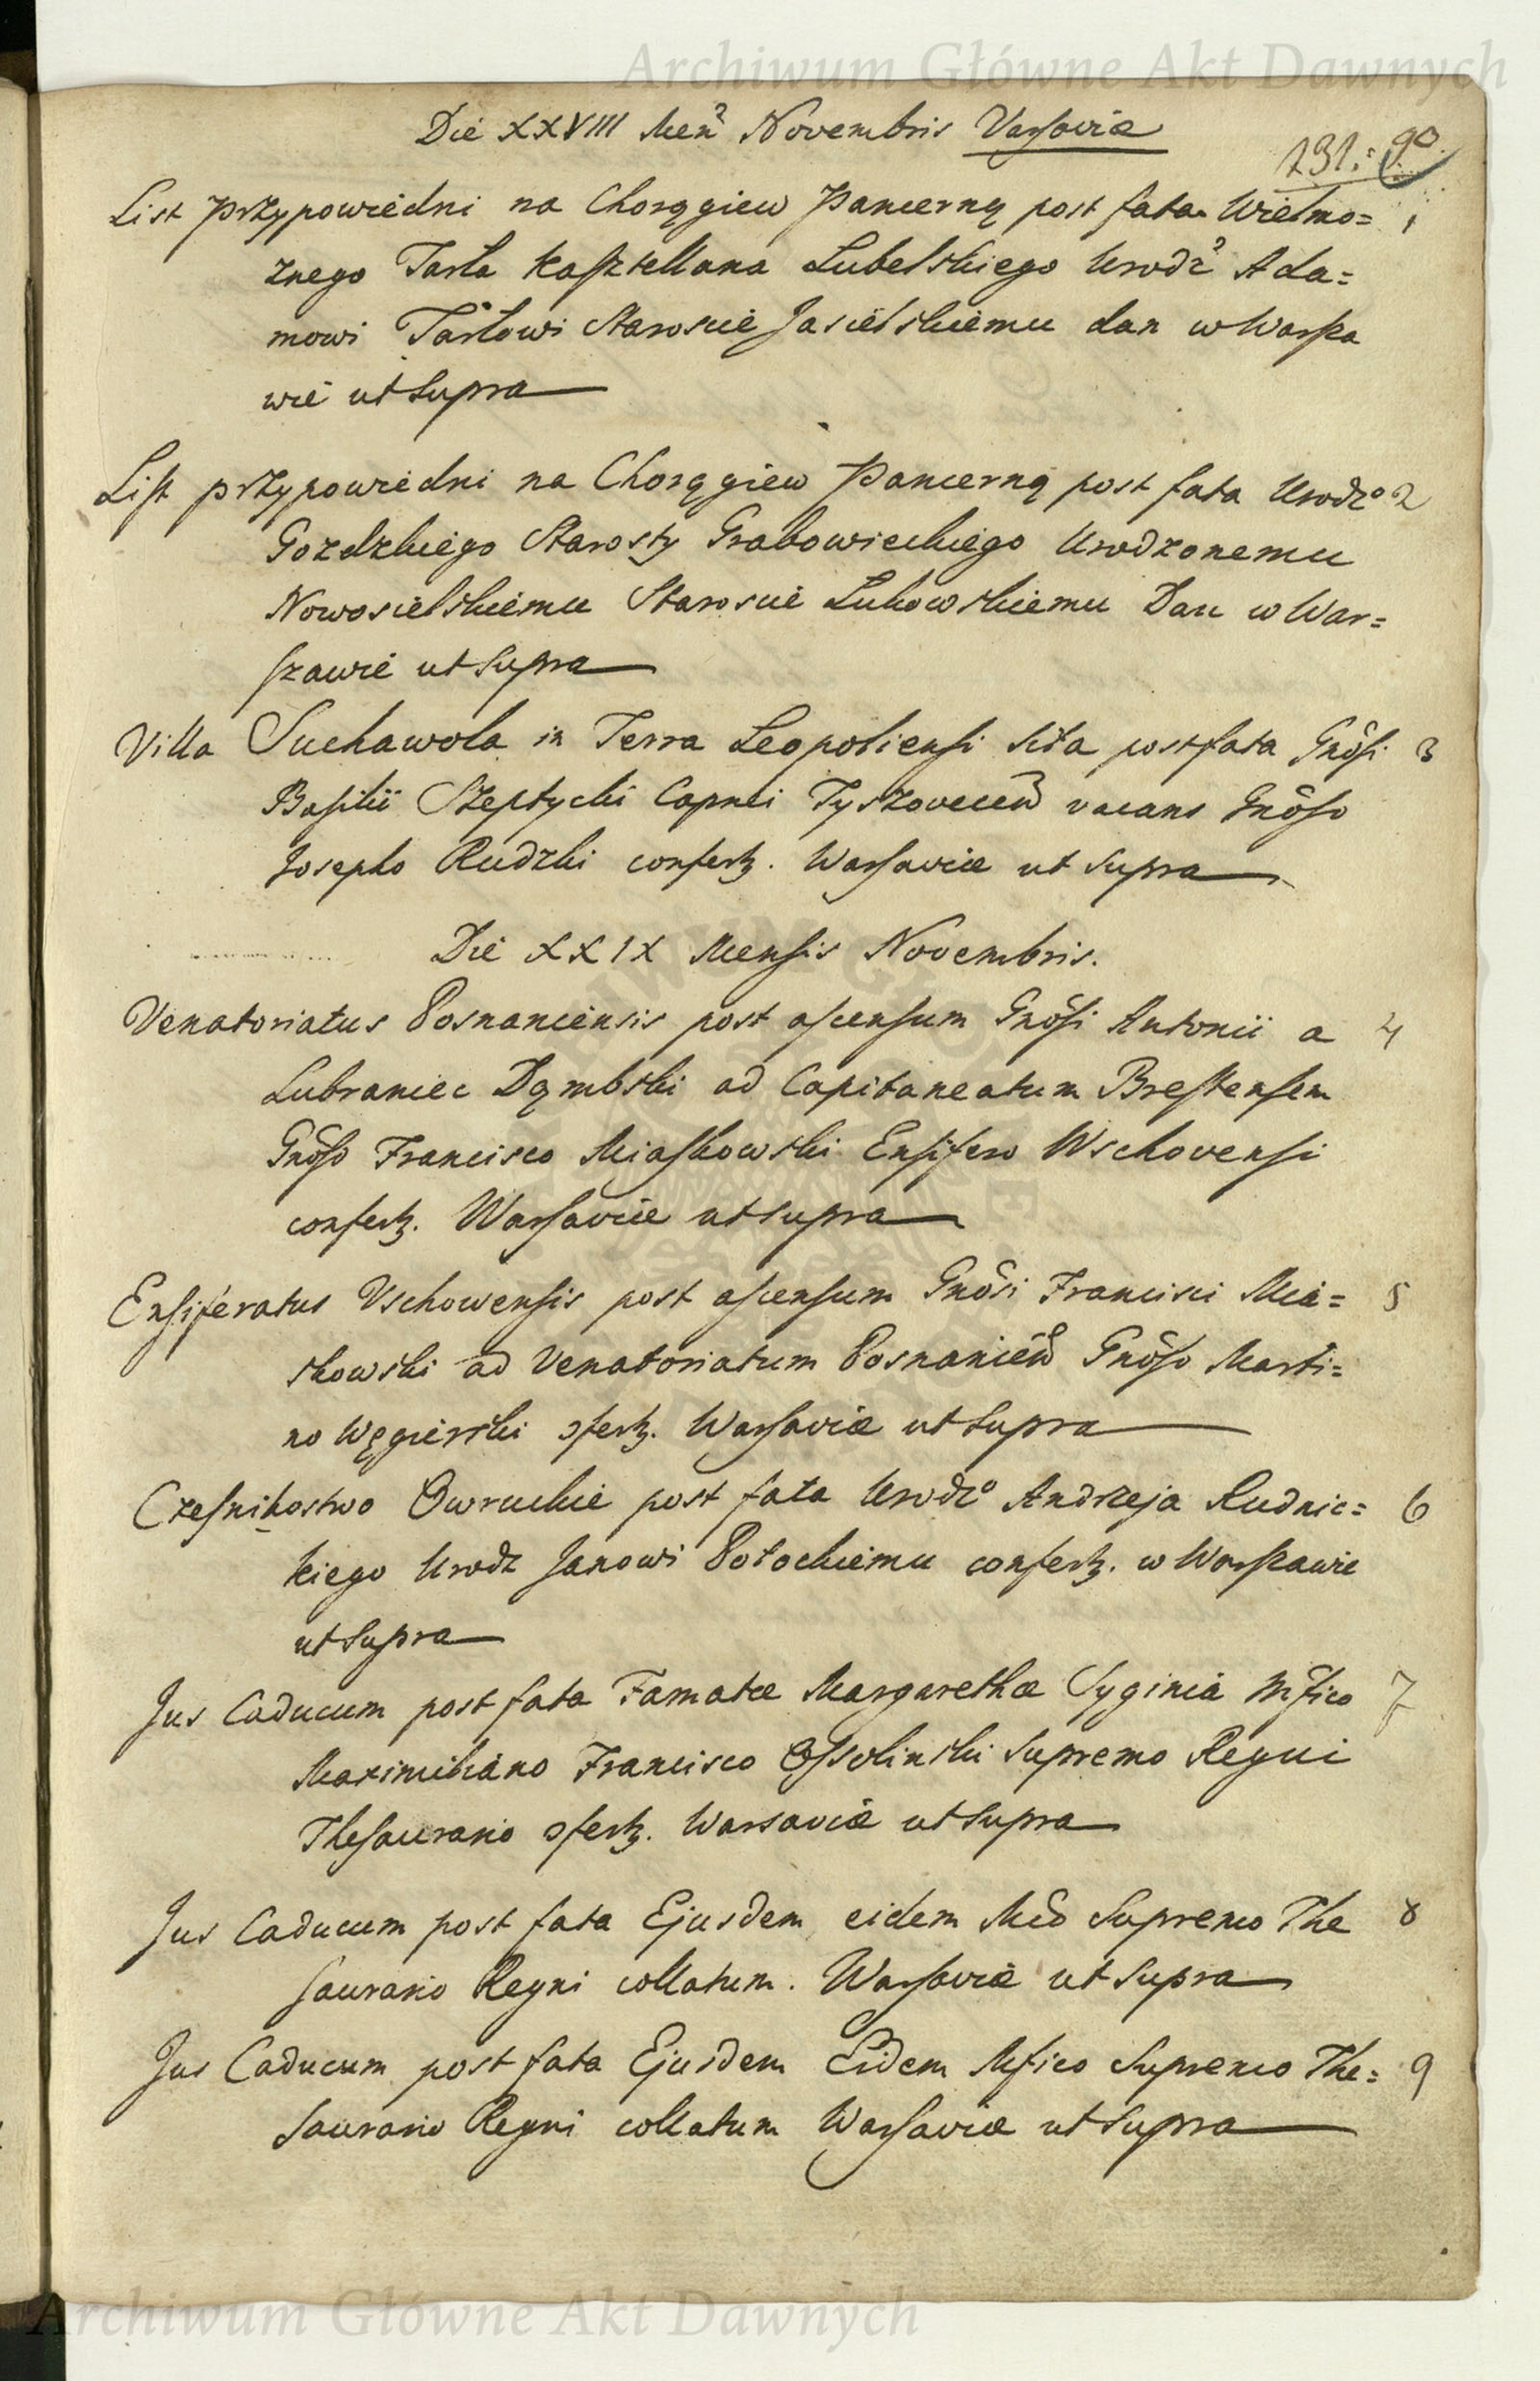 Archiwum Główne Akt Dawnych
Die XXVIII Men Novembris Varsaviæ
131. 90.
List przypowiedni na Chorągiew Pancerną post fata Wielmo= 1
znego Tarła Kasztellana Lubelskiego Urodz Ada=
mowi Tarłowi Staroscie Jasielskiemu dan w Warsza
wie ut supra
List przypowiedni na Chorągiew Pancerną post fata Urodzo 2
Gozdzkiego Starosty Grabowieckiego Urodzonemu
Nowosielskiemu Staroscie Lukowskiemu Dan w War=
szawie ut supra
Villa Suchawola in Terra Leopoliensi sita post fata Gnosi 3
Basilii Szeptycki Capnei Tyszovecen vacans Gnoso
Josepho Rudzki confertz. Warsaviæ ut supra
Die XXIX Mensis Novembris.
Venatoriatus Posnaniensis post ascensum Gnosi Antonii a 4
Lubraniec Dąmbski ad Capitaneatum Brestensem
Gnoso Francisco Miaskowski Ensifero Wschovensi
confertz. Warsaviæ ut supra
Ensiferatus Vschowensis post ascensum Gnosi Francisci Mia= 5
skowski ad Venatoriatum Posnanien Gnoso Marti=
no Węgierski ɔfertz. Warsaviæ ut supra
Czesnikostwo Owruckie post fata Urodzo Andrzeja Rudnic= 6
kiego Urodz Janowi Potockiemu confertz. w Warszawie
ut supra
Jus Caducum post fata Famatæ Margarethæ Syginia Mfico 7
Maximiliano Francisco Ossolinski Supremo Regni
Thesaurario ɔfertz. Warsaviæ ut supra
Jus Caducum post fata Ejusdem eidem Supremo The 8
saurario Regni collatum. Warsaviæ ut supra
Jus Caducum post fata Ejusdem Eidem Mfico Supremo The= 9
saurario Regni collatum Warsaviæ ut supra
Archiwum Główne Akt Dawnych